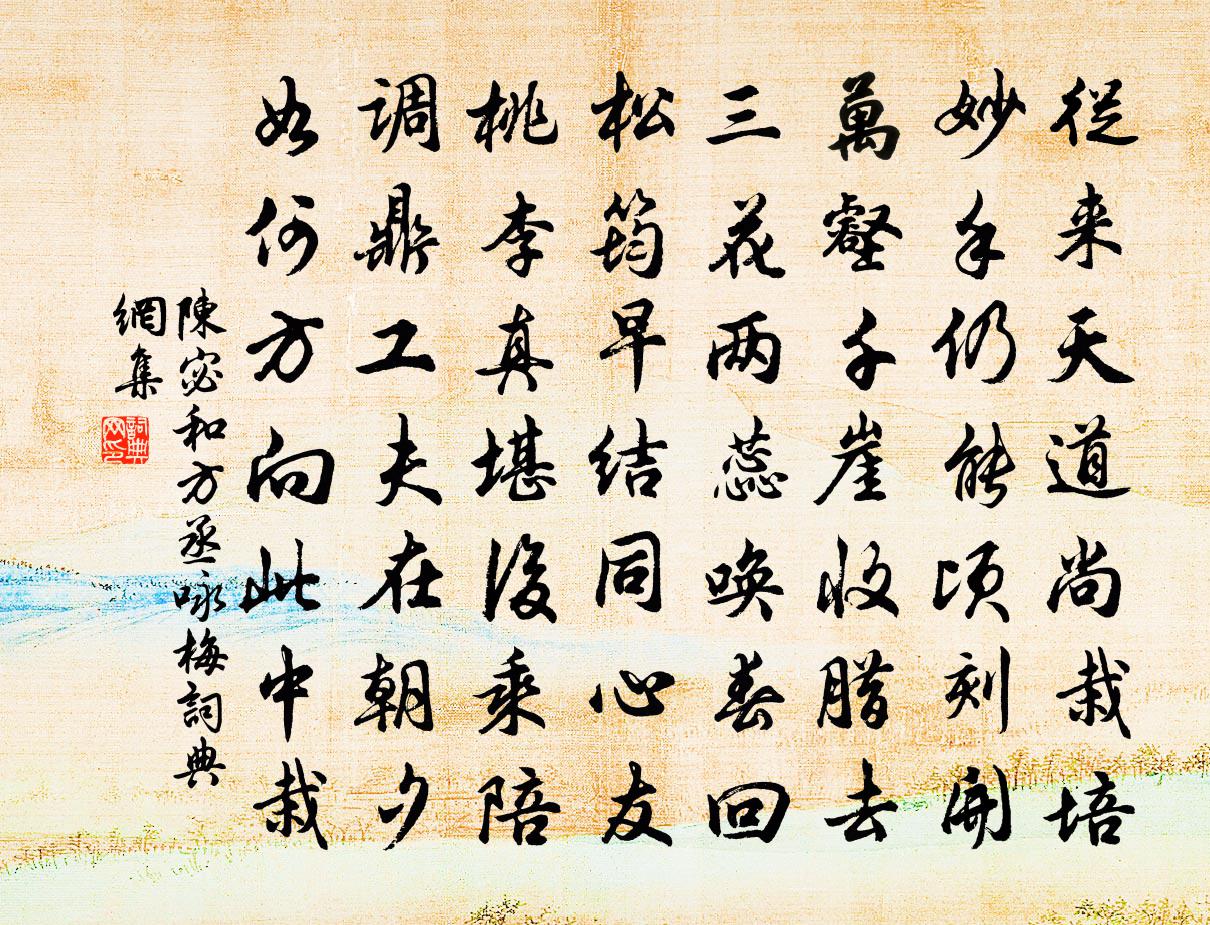 從来天道尚栽培
妙手仍能頃刻開
萬壑千崖收腊去
三花两蕊喚春回
松筠早结同心友
桃李真堪後乘陪
调鼎工夫在朝夕
如何方向此中栽
陳宓和方丞咏梅詞典
網集
詞典网印